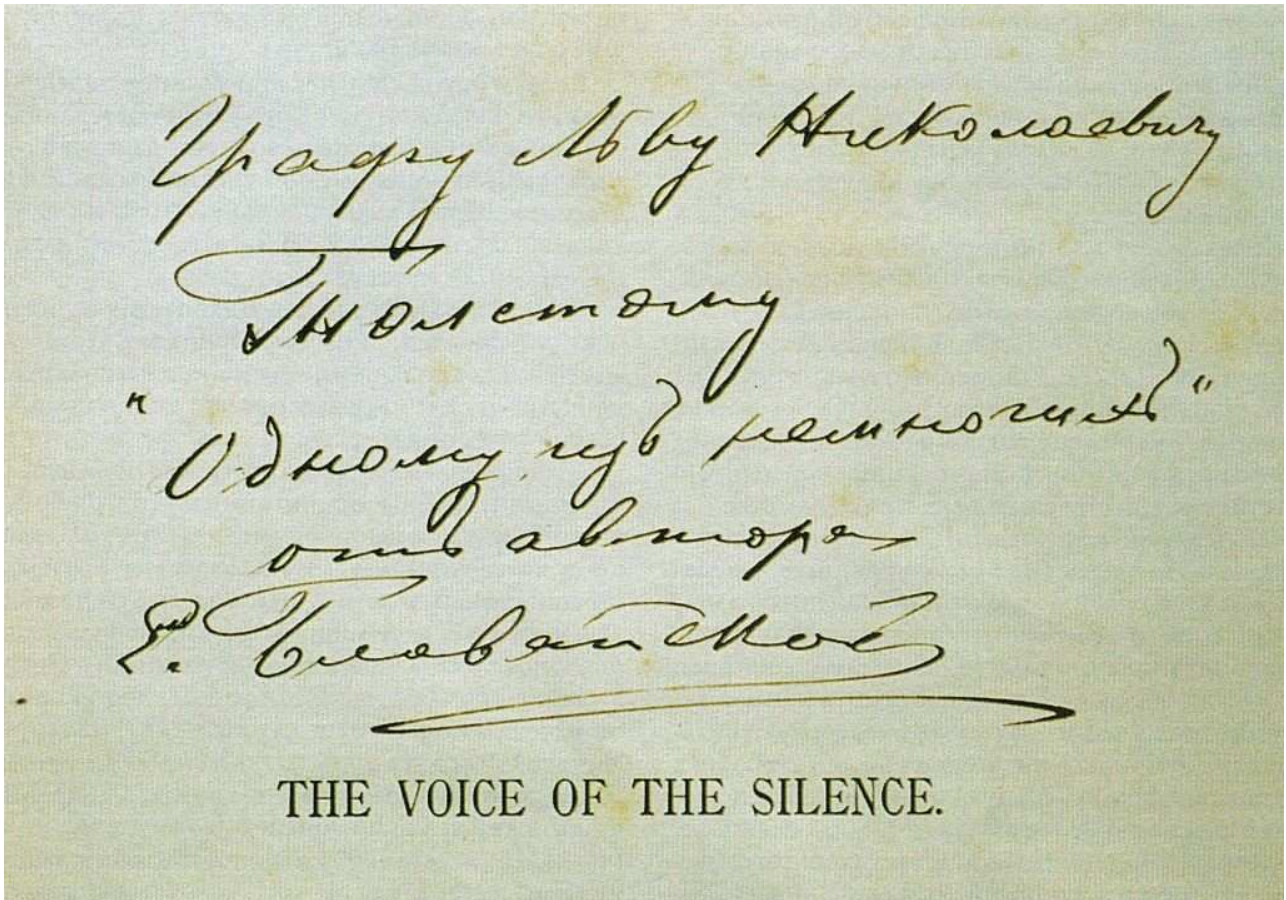 Графу Льву Николаевичу
Толстому
"Одному изъ немногихъ"
отъ автора
Е. Блаватской
THE VOICE OF THE SILENCE.